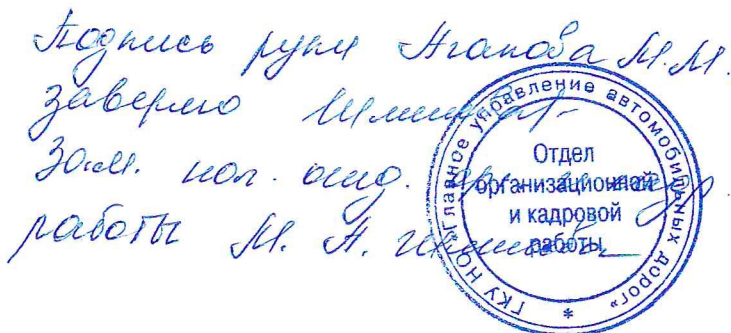 Подпись руки Агапова М.М.
заверяю
Зам. нач. отд. орг. и кадр.
работы М. А.
ГКУ НО "Главное управление автомобильных дорог"
Отдел
организационной
и кадровой
работы
*